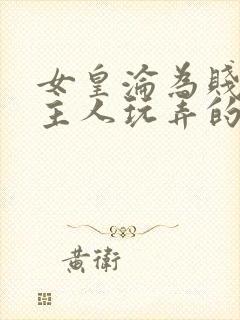 女皇淪為賤
主人玩弄的
黃衛